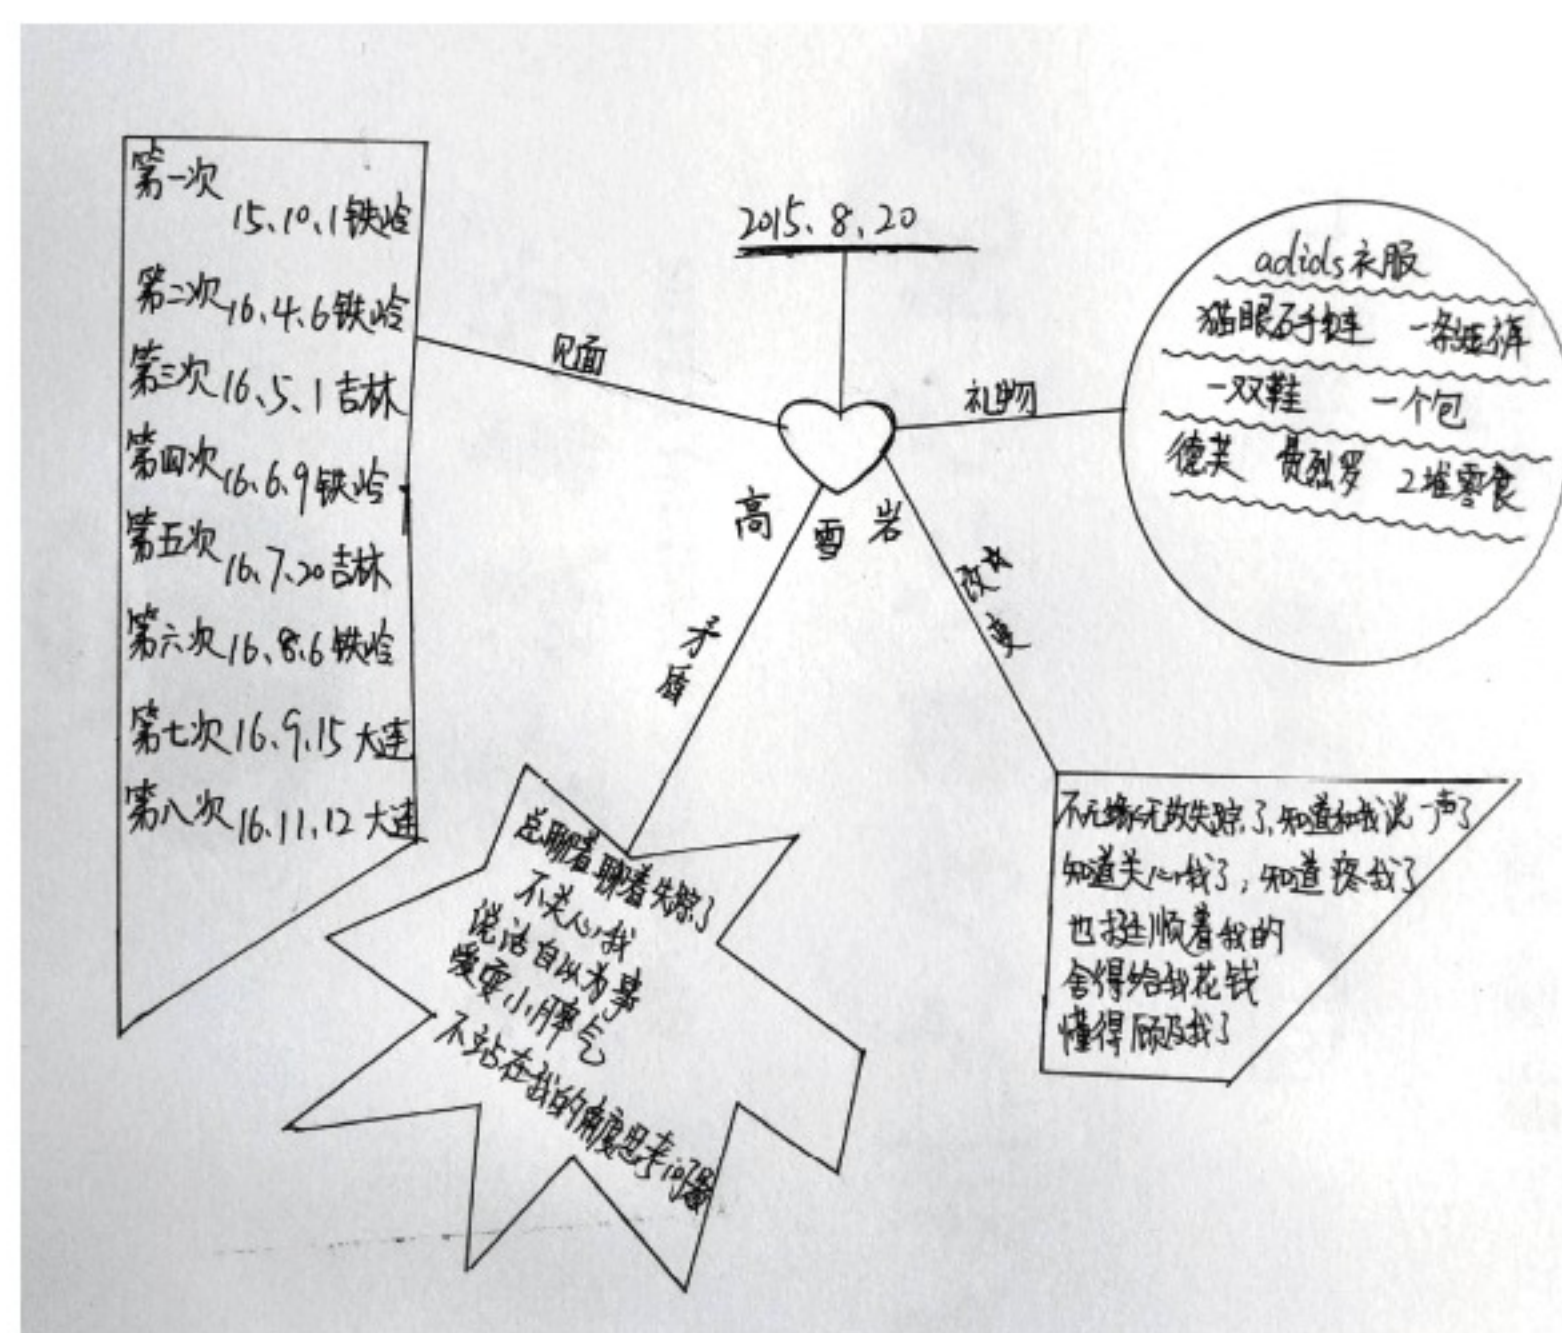 2015.8.20
高雪岩
见面
第一次
15.10.1铁岭
第二次16.4.6铁岭
第三次16.5.1吉林
第四次16.6.9铁岭
第五次
16.7.20吉林
第六次16.8.6铁岭
第七次16.9.15大连
第八次16.11.12大连
礼物
adids衣服
猫眼石手链 一条短裤
一双鞋 一个包
德芙 费烈罗 2堆零食
矛盾
总聊着聊着失踪了
不关心我
说话自以为是
爱耍小脾气
不站在我的角度思考问题
改变
不无缘无故失踪了,知道和我说一声了
知道关心我了,知道疼我了
也挺顺着我的
舍得给我花钱
懂得顾及我了